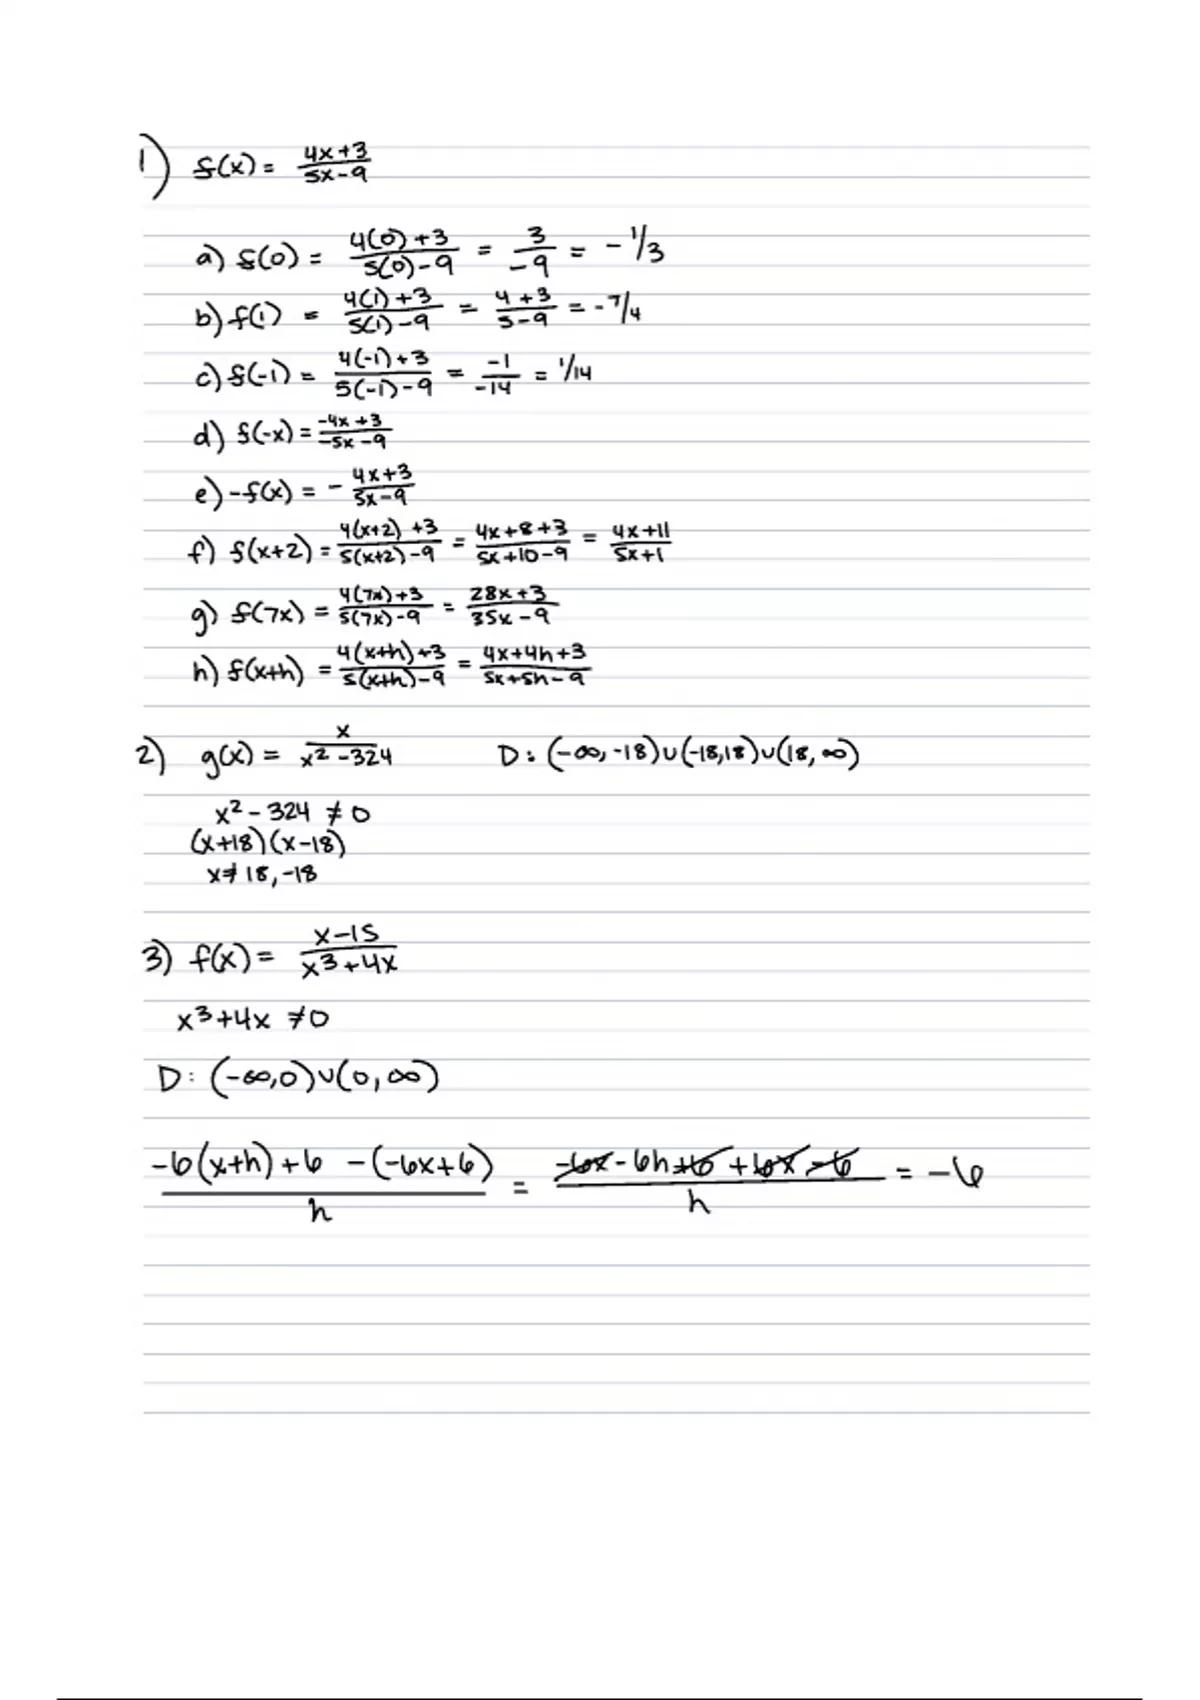 1) f(x) = (4x+3)/(5x-9)
a) f(0) = (4(0)+3)/(5(0)-9) = 3/-9 = -1/3
b) f(1) = (4(1)+3)/(5(1)-9) = (4+3)/(5-9) = -7/4
c) f(-1) = (4(-1)+3)/(5(-1)-9) = -1/-14 = 1/14
d) f(-x) = (-4x+3)/(-5x-9)
e) -f(x) = - (4x+3)/(5x-9)
f) f(x+2) = (4(x+2)+3)/(5(x+2)-9) = (4x+8+3)/(5x+10-9) = (4x+11)/(5x+1)
g) f(7x) = (4(7x)+3)/(5(7x)-9) = (28x+3)/(35x-9)
h) f(x+h) = (4(x+h)+3)/(5(x+h)-9) = (4x+4h+3)/(5x+5h-9)
2) g(x) = x/(x²-324) D: (-∞,-18)∪(-18,18)∪(18,∞)
x²-324 ≠ 0
(x+18)(x-18)
x≠ 18,-18
3) f(x) = (x-15)/(x³+4x)
x³+4x ≠0
D: (-∞,0)∪(0,∞)
(-6(x+h)+6 -(-6x+6))/h = (-6x-6h+6+6x-6)/h = -6